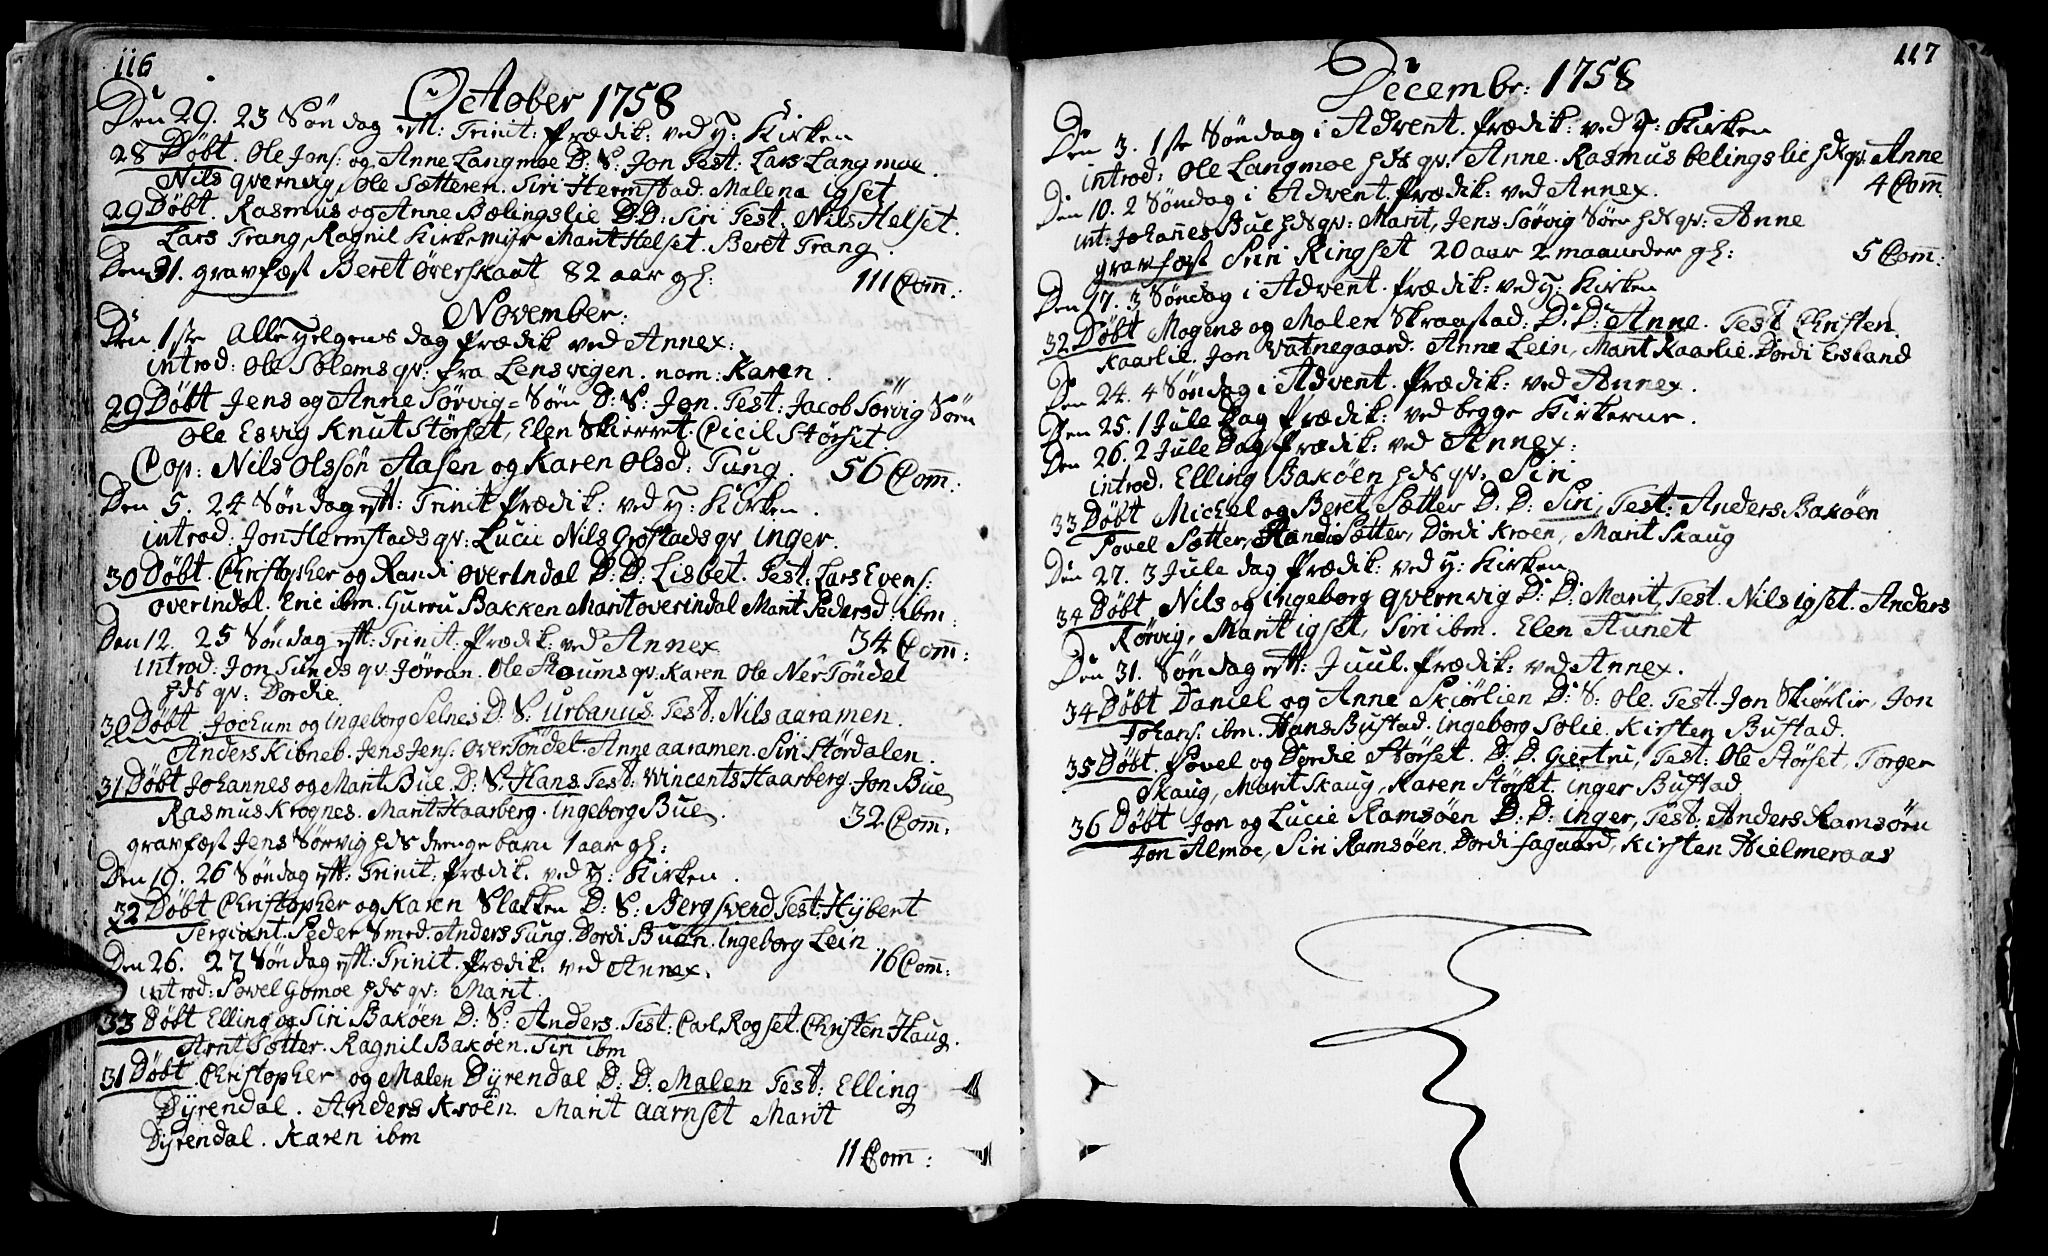 116
October 1758
Den 29. 23 Søndag eft: Trinit: Prædik: ved H: Kirken
28 Døbt. Ole Jons: og Anne Langmoe D: S: Jon Test: Lars Langmoe.
Nils qvernvig, Ole Sætteren. Siri Hermstad. Malena igset
29 Døbt. Rasmus og Anne Bælingslie D: D: Siri Test. Nils Helset.
Lars Trang, Ragnil Kirkemyr Marit Helset. Beret Trang.
Den 31. gravfæst Beret Øverskaat 82 aar gl: 111 Com:
November:
Den 1ste Alle Helgens dag Prædik ved Annex:
introd: Ole Solems qv: fra Lensvigen. nom: Karen.
29 Døbt Jens og Anne Sørvig = Søen D: S: Jon. Test: Jacob Sørvig Søen
Ole Esvig Knut Størset, Elen Skierret. Cicil Størset
Cop: Nils Olssøn Aasen og Karen Olsd: Tung. 56 Com:
Den 5. 24 Søndag eft: Trinit Prædik: ved H: Kirken.
introd: Jon Hermstads qv: Lucie Nils Grøstads qv inger.
30 Døbt. Christopher og Randi overindal D: D: Lisbet. Test: Lars Evens:
overindal. Eric ibm. Gurru Bakken Marit overindal Marit Pedersd: ibm:
Den 12. 25 Søndag eft: Trinit: Prædik: ved Annex 34 Com:
introd: Jon Sunds qv Jørran. Ole qv: Karen Ole Ner Tøndel
hds qv: Dordie
30 Døbt Jochum og Ingeborg Selnes D: S: Urbanus. Test: Nils aaramen.
Anders Kibneb. Jens Jens: over Tøndel. Anne aaramen. Siri Størdalen.
31 Døbt Johannes og Marit Bue. D: S: Hans. Test: Wincents Haarberg. Jon Bue
Rasmus Krognes. Marit Haarberg. Ingeborg Bue. 32 Com.
gravfæst Jens Sørvig hds drenge barn 1 aar gl:
Den 19. 26 Søndag eft: Trinit: Prædik. ved H: Kirken.
32 Døbt Christopher og Karen Slakken D: S: Bergsvend Test: Hybert
Sergiant. Peder Smed. Anders Tung. Dordi Buen. Ingeborg Lein.
Den 26. 27 Søndag eft: Trinit. Prædik: ved Annex. 16 Com:
introd: Povel Gomoe hds qv: Marit.
33 Døbt Elling og Siri Bakøen D: S: Anders. Test: Carl Rogset. Christen Haug.
Arnt Sætter. Ragnil Bakøen. Siri ibm
31 Døbt Christopher og Malen Dyrendal D: D: Malen Test: Elling
Dyrendal. Anders Kroen. Marit aarnset Marit
Dyrendal. Karen ibm
11 Com:
117
Decembr: 1758
Den 3. 1ste Søndag i Advent. Prædik: ved H: Kirken
introd: Ole Langmoe hds qv. Anne. Rasmus belingslie hds qv: Anne
Den 10. 2 Søndag i Advent. Prædik: ved Annex. 4 Com
int: Johannes Bue hds qv: Marit, Jens Sørvig Søen hds qv: Anne
gravfæst Siri Ringset 20 aar 2 maaneder gl: 5 Com:
Den 17. 3 Søndag i Advent. Prædik: ved H: Kirken
32 Døbt Mogens og Malen Skraastad: D: D: Anne. Test Christen
Kaarlie. Jon Vatnegaard. Anne Lein, Marit Kaarlie. Dordi Esland
Den 24. 4 Søndag i Advent. Prædik: ved Annex.
Den 25. 1 Jule Dag Prædik: ved begge Kirkerne.
Den 26. 2 Jule Dag Prædik: ved Annex:
introd. Elling Bakøen hds qv: Siri
33 Døbt Michel og Beret Sætter D. D: Siri, Test: Anders Bakøen
Povel Sætter, Randi Sætter, Dordi Kroen, Marit Skaug
Den 27. 3 Jule dag Prædik: ved H: Kirken
34 Døbt Nils og Ingeborg Qvernvig D: D: Marit, Test. Nils igset. Anders
Rørvig, Marit igset, Siri ibm. Elen Aunet
Den 31. Søndag eft: Juul. Prædik: ved Annex.
34 Døbt Daniel og Anne Skiørlien D: S: Ole. Test. Jon Skiørlie, Jon
Johans: ibm. Hans Bustad. Ingeborg Solie. Kirsten Bustad.
35 Døbt. Povel og Dordie Størset. D: D. Giertru, Test: Ole Størset, Torger
Skaug, Marit Skaug, Karen Størset. inger Bustad
36 Døbt Jon og Lucie Ramsøen D: D: inger, Test: Anders Ramsøen
Jon Almoe, Siri Ramsøen. Dordi fagaard, Kirsten Hielmeraas